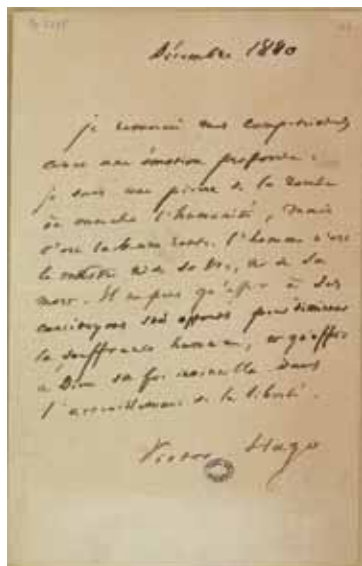 Décembre 1880
je remercie mes compatriotes
avec une émotion profonde.
je suis une pierre de la route
où marche l'humanité, mais
c'est la bonne route. l'homme n'est
le maître ni de sa vie, ni de sa
mort. Il ne peut qu'offrir à ses
concitoyens ses efforts pour diminuer
la souffrance humaine, et qu'offrir
à Dieu sa foi invincible dans
l'accroissement de la liberté.
Victor Hugo